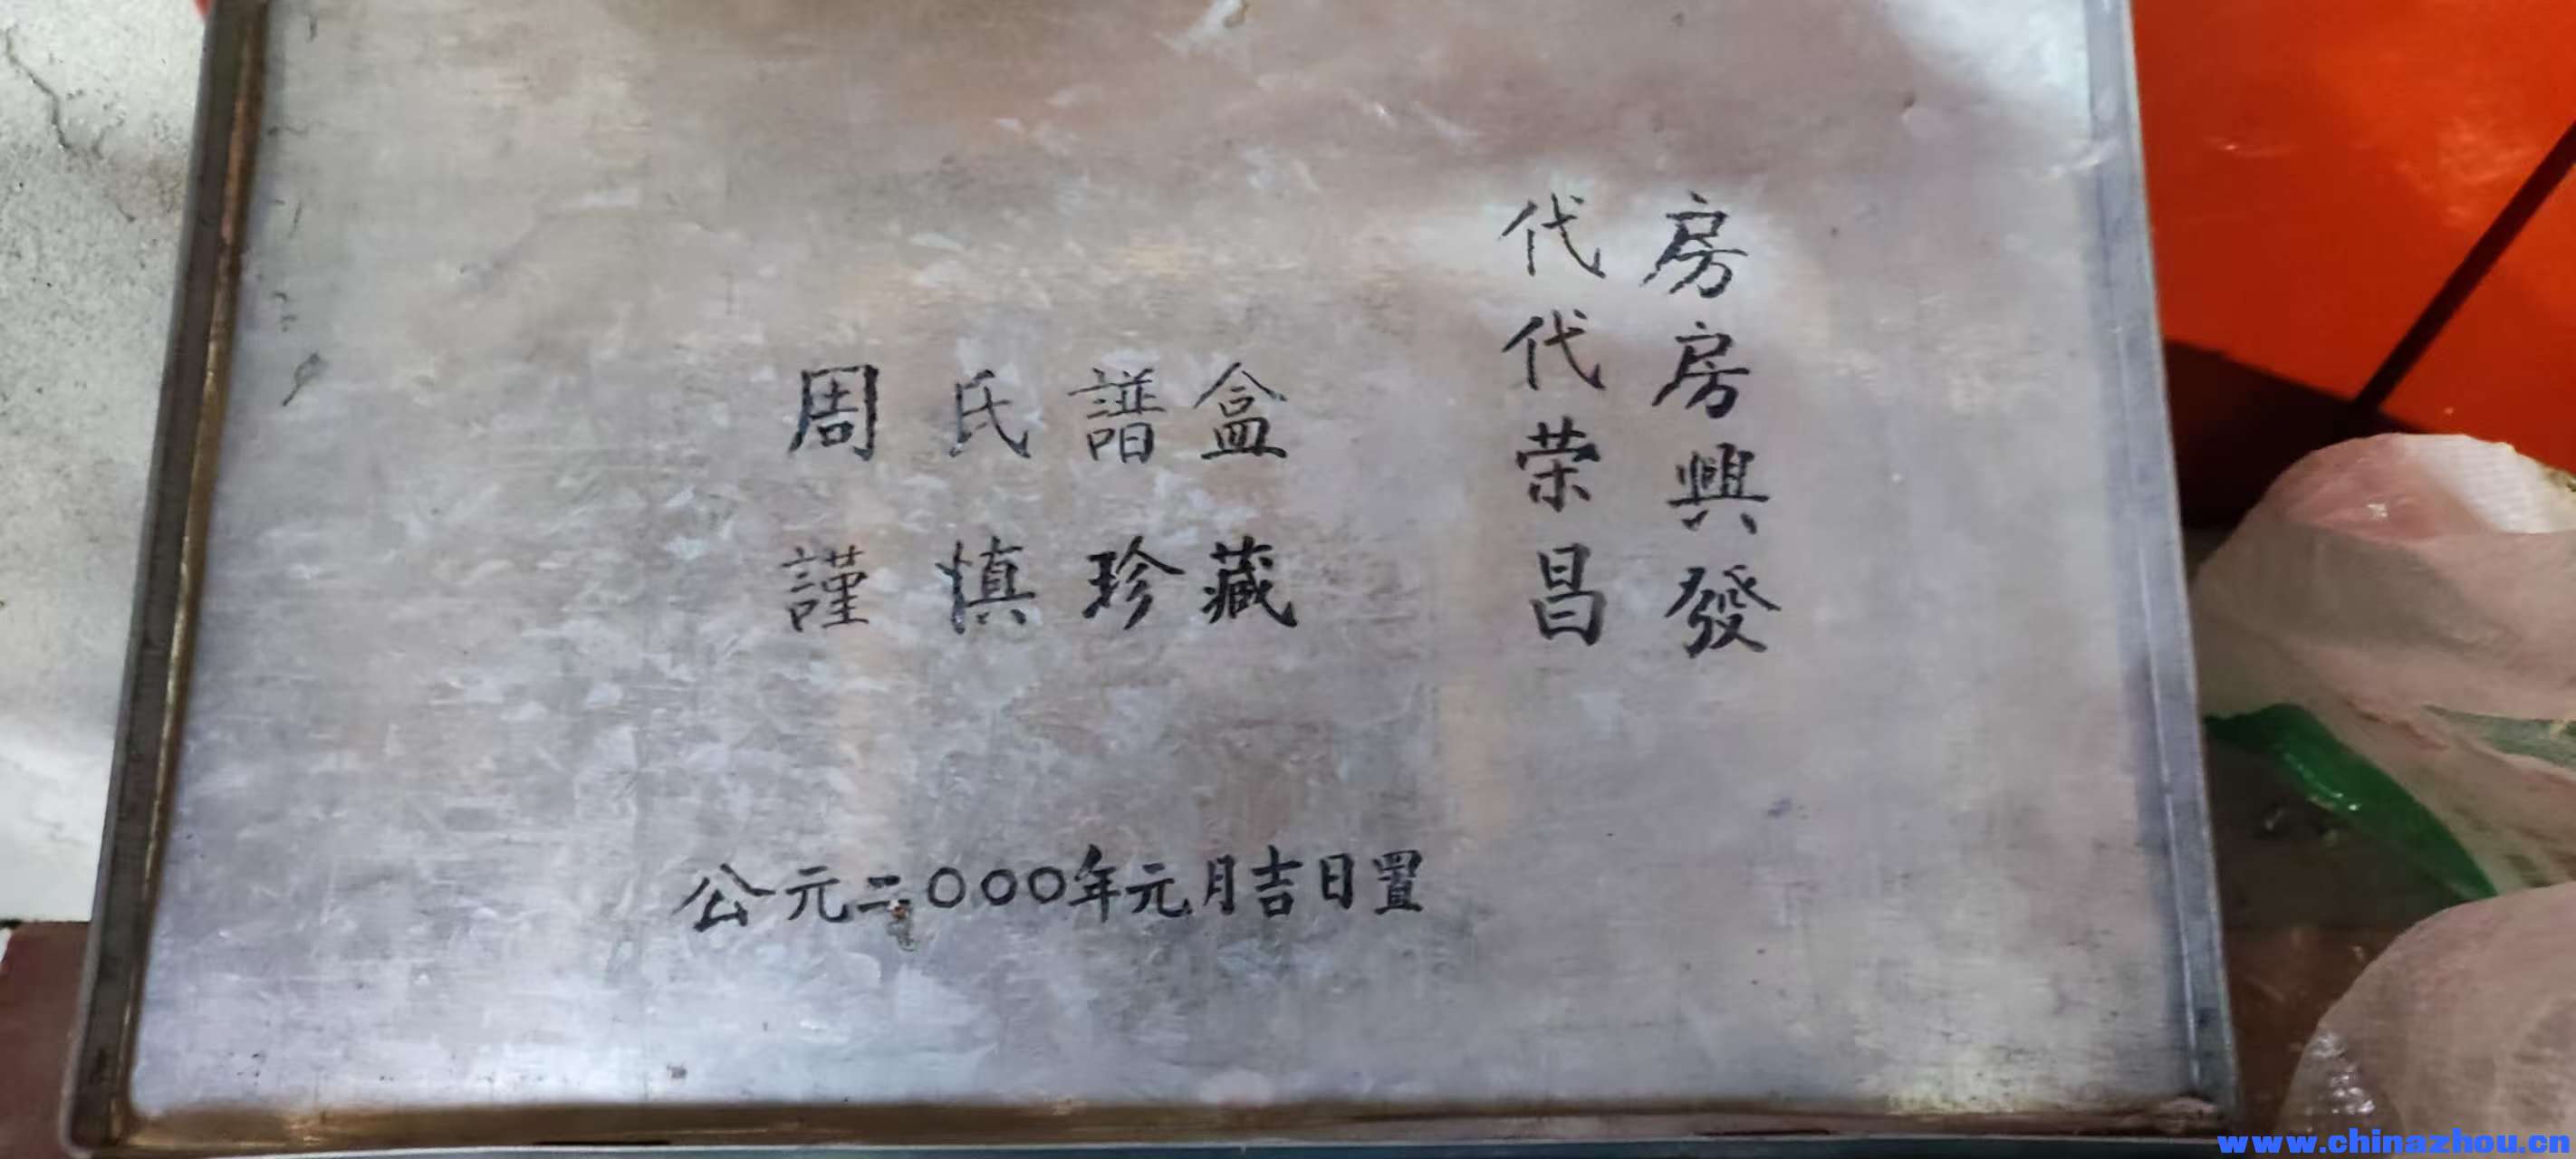 房房興發
代代荣昌
周氏譜盒
謹慎珍藏
公元二〇〇〇年元月吉日置
www.chinazhou.cn